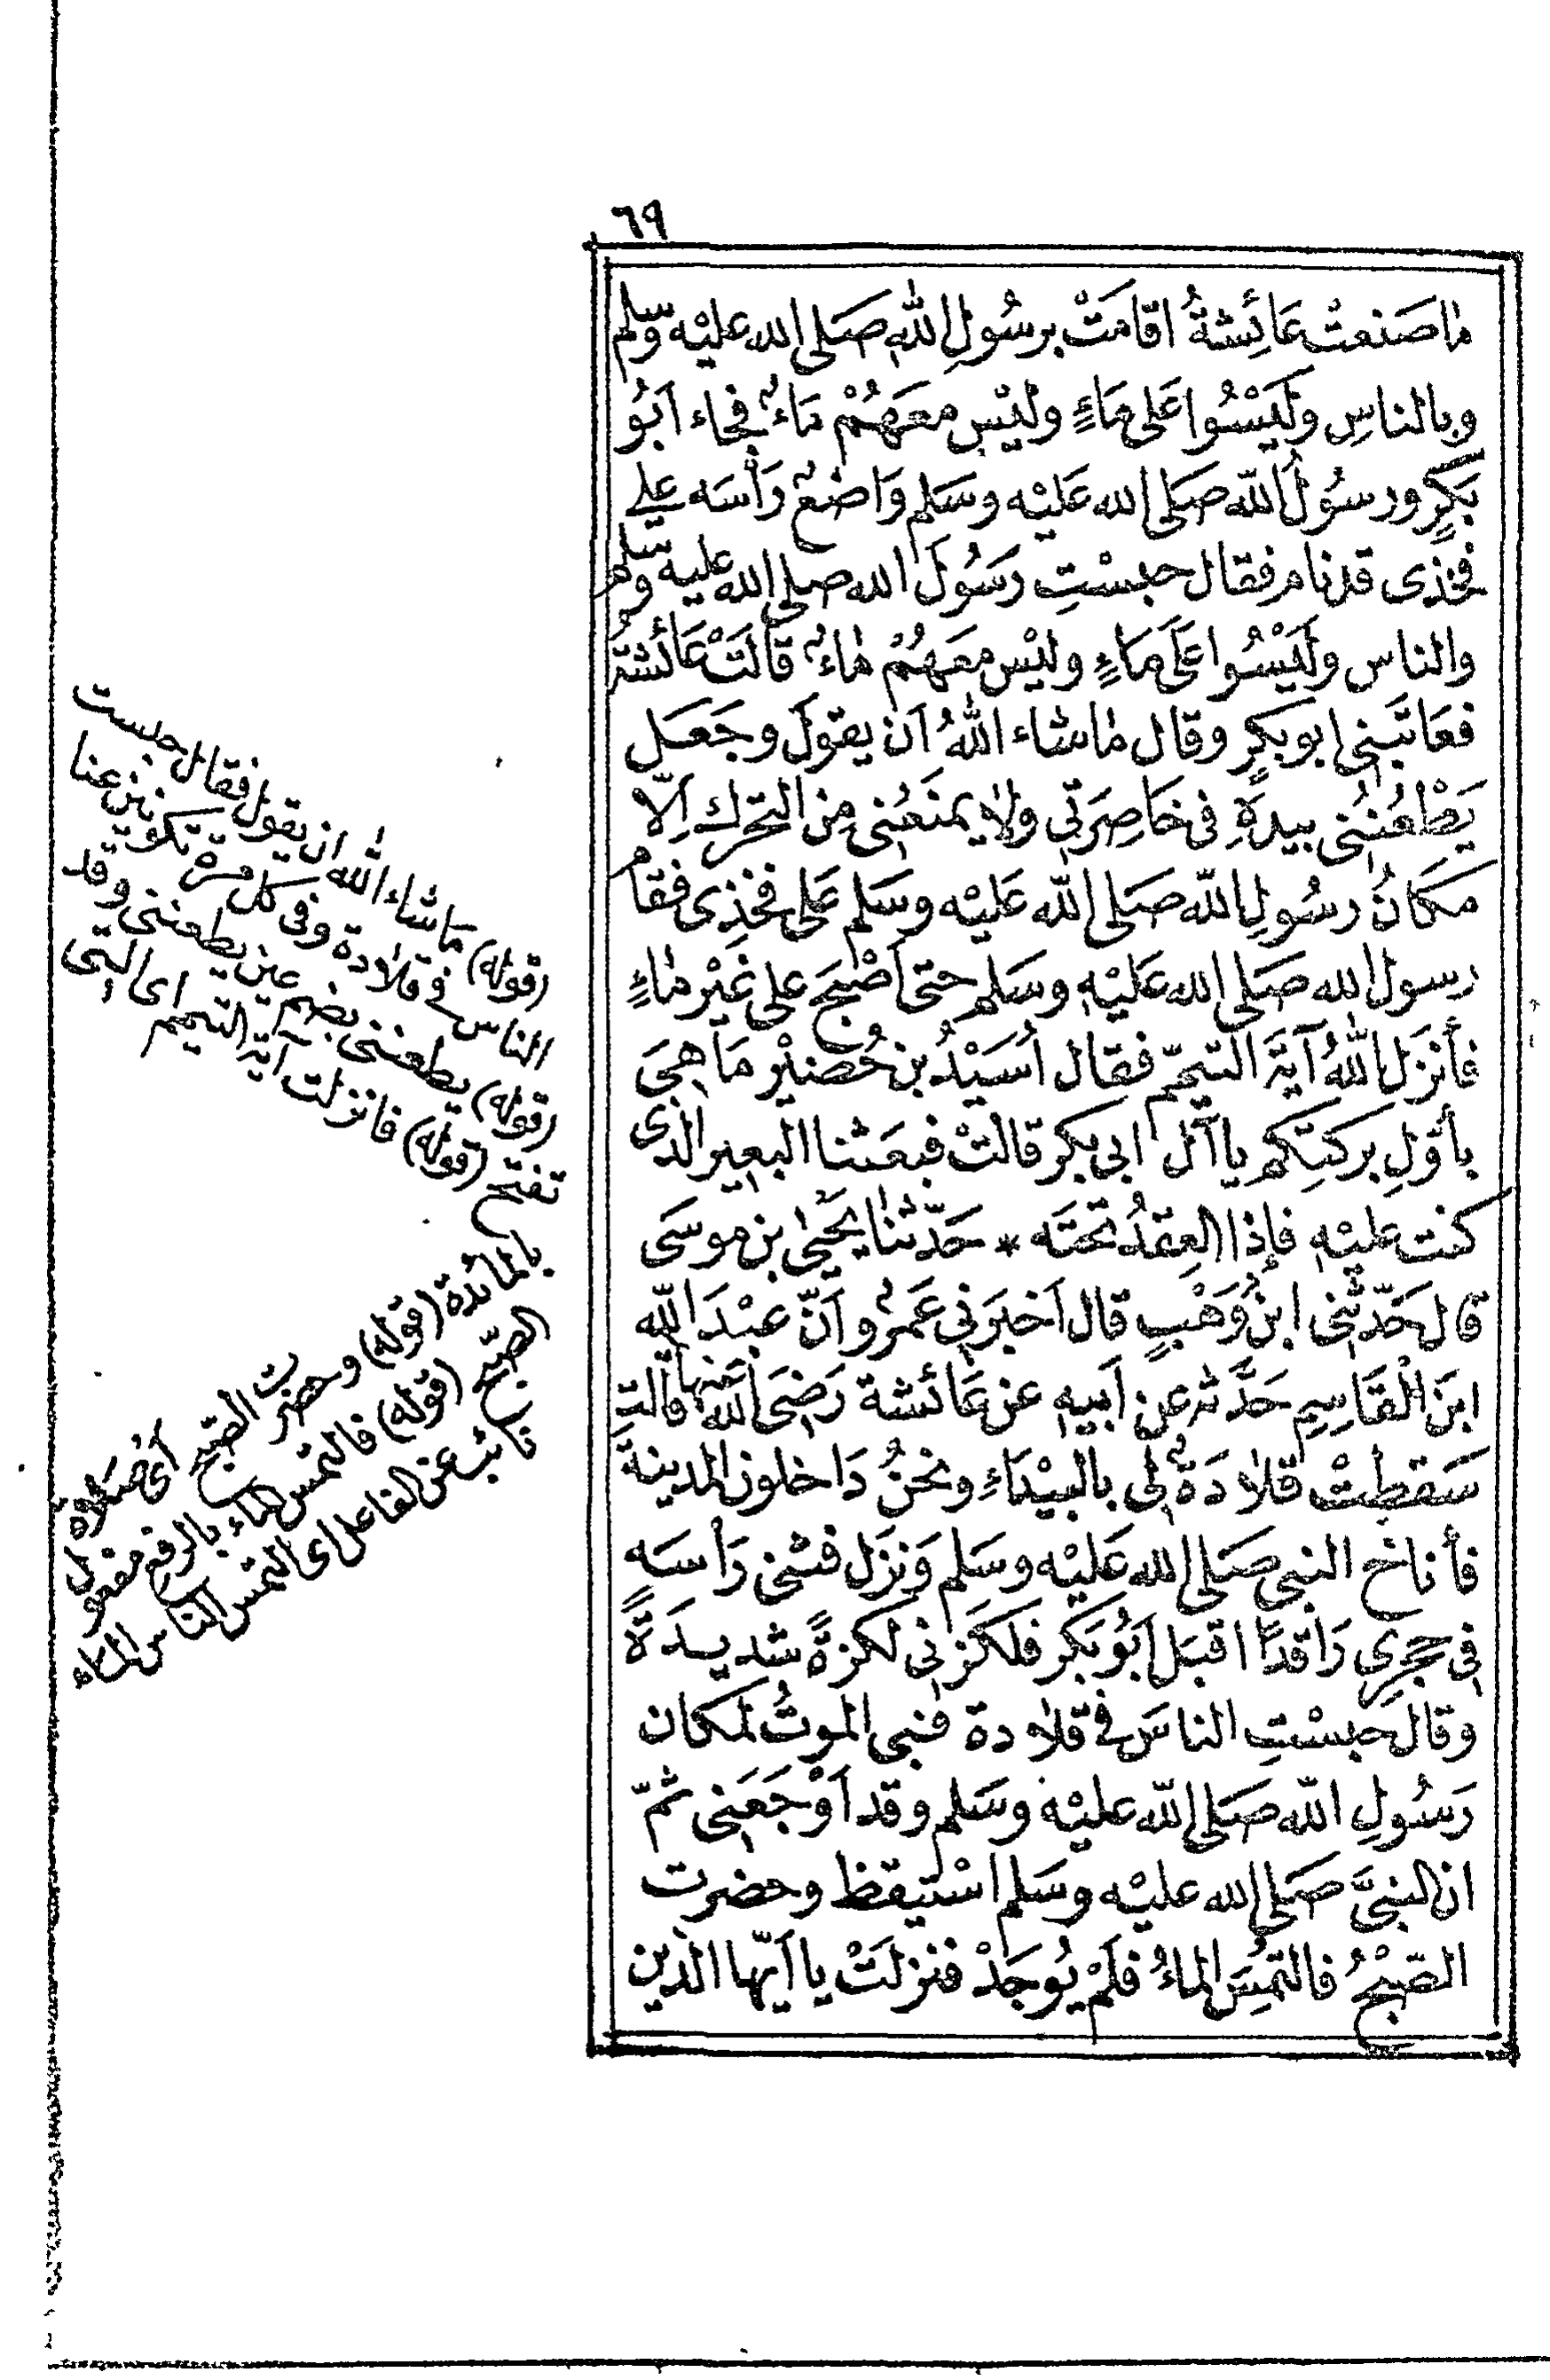 ٦٩
ما صَنعتْ عَائِشةُ اقامَتْ برسُولِ اللّٰهِ صَلى الله عليْه وسّلم
وبالناسِ ولَيْسُوا عَلى مَاءٍ وليْس معَهُمْ مَاءٌ فجاء اَبُو
بَكرٍ ورسُولُ اللّه صَلى الله عَليْه وسَلم وَاضعٌ رَأسَه على
فخذى قد نام فقال حبسْتِ رَسُولَ الله صلى الله عليه وسّلم
والناس ولَيْسُوا عَلَى مَاءٍ وليْس معَهُمْ ماءٌ قالَتْ عَائشةُ
فعَاتَبَنى ابو بكرٍ وقال ما شاء اللّٰهُ اَن يقولَ وجَعَل
يَطْعُنُنى بيدهِ فى خَاصِرَتى ولا يمنَعُنى مِن التحرك اِلّا
مَكانُ رسُولِ اللّه صَلى اللّه عَليْه وسَلم عَلى فخذِى فقام
رسول الله صَلى الله عَليْه وسَلم حتى اَصْبحَ على غَيْر ماءٍ
فأنزَل اللّٰهُ آيَةَ التيمّم فقال اُسَيْدُ بن حُضيْر مَا هِىَ
بأوّلِ بركتِكم يا آل ابى بكر قالتْ فبعَثنا البعير الذى
كنت عليْه فإذا العِقدُ تحتَه * حَدّثنا يَحْيٰى بن موسَى
قال حَدّثنى ابنُ وَهْبٍ قال اَخبَرَنى عَمرٌو اَنّ عبْدَ اللّه
ابنَ الْقَاسِمِ حَدَّثه عن اَبيه عن عَائشة رَضىَ اللّه عنها قالت
سَقطتْ قلادَةٌ لى بالبيْدَاءِ ونحنُ دَاخلون المدينةَ
فأناخ النبى صَلى الله عَليْه وسَلم وَنزَل فثنى رَأسَه
فى حجرى رَاقدًا اقبَل اَبُو بَكر فلكزنى لكزةً شديدَةً
وقال حبسْتِ الناسَ فى قلادة فبى الموتُ لمكان
رَسُولِ اللّه صَلى اللّه عليْه وسَلم وقد اَوْجَعَنى ثمّ
ان النبىَّ صَلى الله عليْه وسَلم اسْتيقظ وحضرت
الصّبْحُ فالتمُسَ الماءُ فلَمْ يُوجَدْ فنزلَتْ يا اَيّها الذين
(قوله) مَا شاء اللّٰه ان يقول فقال حبست
الناس فى قلادة وفى كل مرة تكونين عنا
(قوله) يطعننى بضم عين يطعننى وقد
تفتح (قوله) فانزلت آية التيمم اى التى
بالمائدة (قوله) وحضرت الصّبح اى صَلاة
الصّبح (قوله) فالتمس الماء بالرفع مفعول
نائب عن الفاعل اى التمس الناس الماء